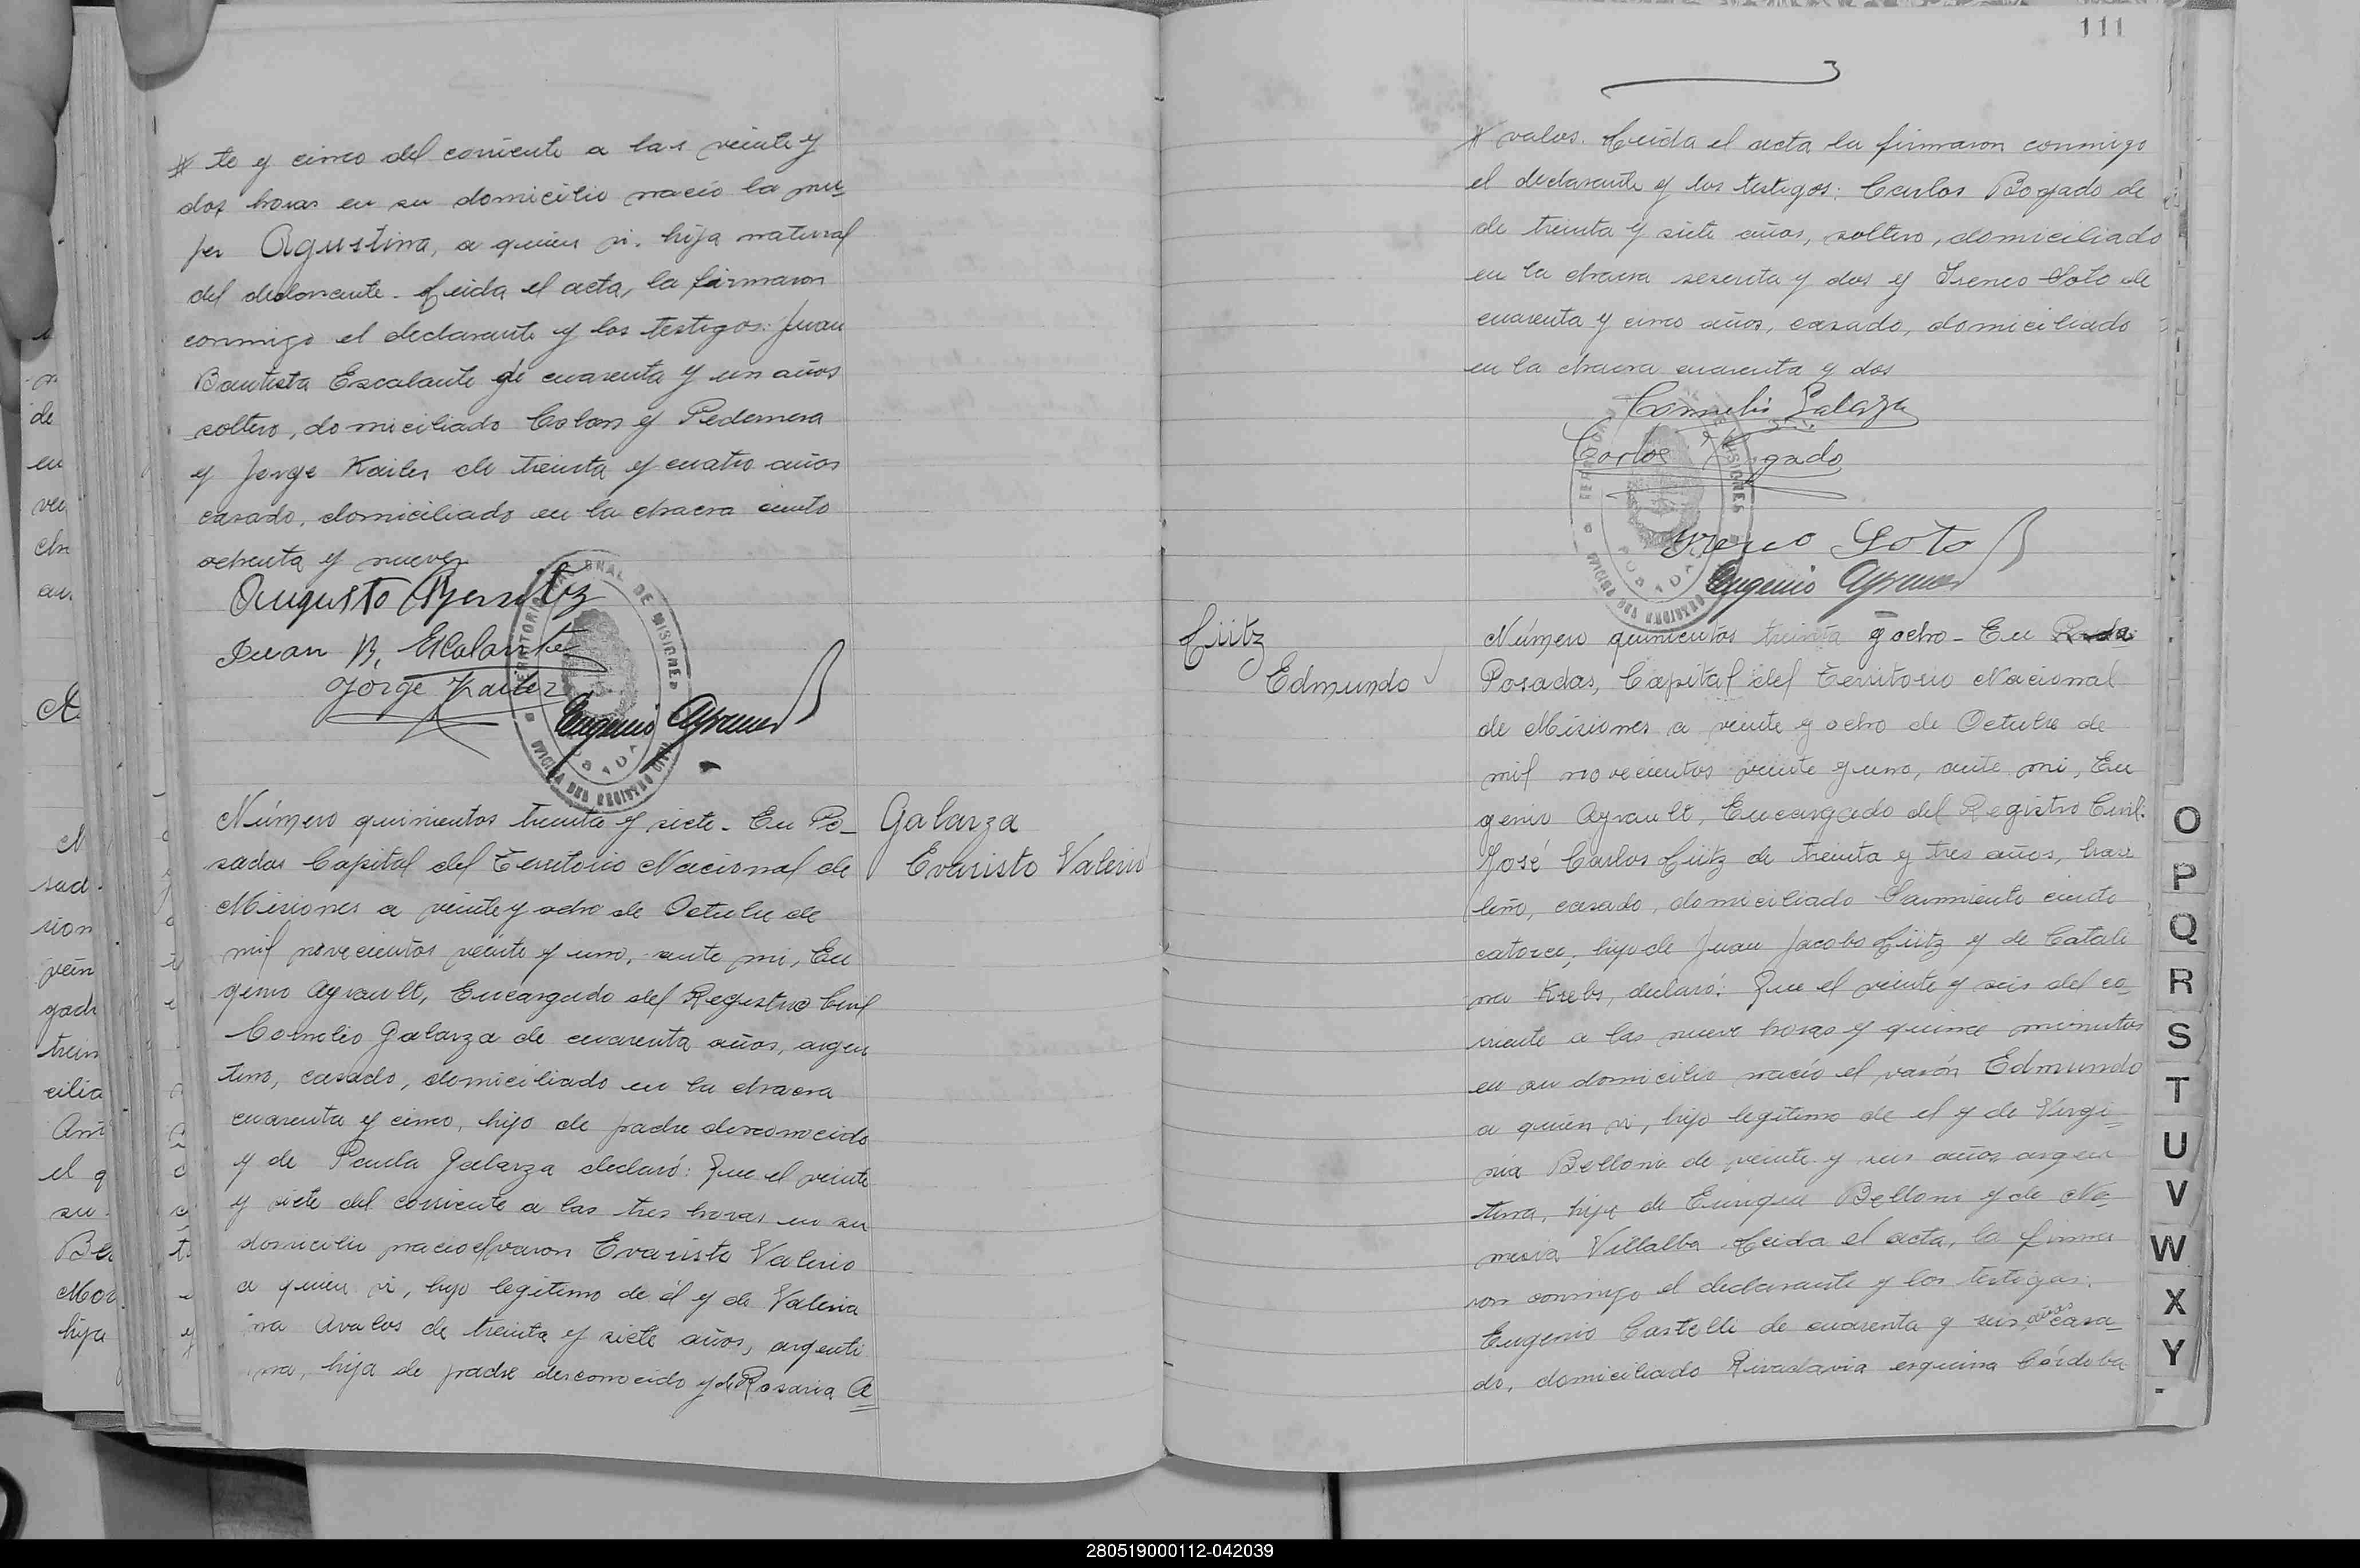 te y cinco del corriente a las veinte y
dos horas en su domicilio nació la mu-
jer Agustina, a quien vi. hija natural
del declarante. Leida el acta, la firmaron
conmigo el declarante y los testigos: Juan
Bautista Escalante de cuarenta y un años
soltero, domiciliado Colon y Pedernera
y Jorge Kailer de treinta y cuatro años
casado, domiciliado en la chacra ciento
ochenta y nueve
Augusto
Juan B. Escalante
Jorge
Eugenio Ayrault
Número quinientos treinta y siete. En Po-
sadas Capital del Territorio Nacional de
Misiones a veinte y ocho de Octubre de
mil novecientos veinte y uno, ante mi, Eu
genio Ayrault, Encargado del Registro Civil
Cornelio Galarza de cuarenta años, argen
tino, casado, domiciliado en la chacra
cuarenta y cinco, hijo de padre desconocido
y de Paula Galarza declaró: Que el veinte
y siete del corriente a las tres horas en su
domicilio nacio el varon Evaristo Valerio
a quien vi, hijo legitimo de él y de Valeria
na Avalos de treinta y siete años, argenti
na, hija de padre desconocido y de Rosaria A
Galarza
Evaristo Valerio
111
valos. Leida el acta la firmaron conmigo
el declarante y los testigos: Carlos Bogado de
de treinta y siete años, soltero, domiciliado
en la chacra sesenta y dos y Ireneo Soto de
cuarenta y cinco años, casado, domiciliado
en la chacra cuarenta y dos
Cornelio Galarza
Carlos Bogado
Ireneo Soto
Eugenio Ayrault
Lütz
Edmundo
Número quinientos treinta y ocho - En
Posadas, Capital del Territorio Nacional
de Misiones a veinte y ocho de Octubre de
mil novecientos veinte y uno, ante mi, Eu
genio Ayrault, Encargado del Registro Civil.
José Carlos Lütz de treinta y tres años, brasi
leño, casado, domiciliado Sarmiento ciento
catorce, hijo de Juan Jacobo Lütz y de Catali
na Krebs, declaró: Que el veinte y seis del co-
rriente a las nueve horas y quince minutos
en su domicilio nació el varón Edmundo
a quien vi, hijo legitimo de el y de Virgi-
nia Belloni de veinte y seis años argen
tina, hija de Enrique Belloni y de Ne-
mesia Villalba. Leida el acta, la firma
ron conmigo el declarante y los testigos:
Eugenio Castelli de cuarenta y seis años casa-
do, domiciliado Rivadavia esquina Córdoba
O
P
Q
R
S
T
U
V
W
X
Y
280519000112-042039